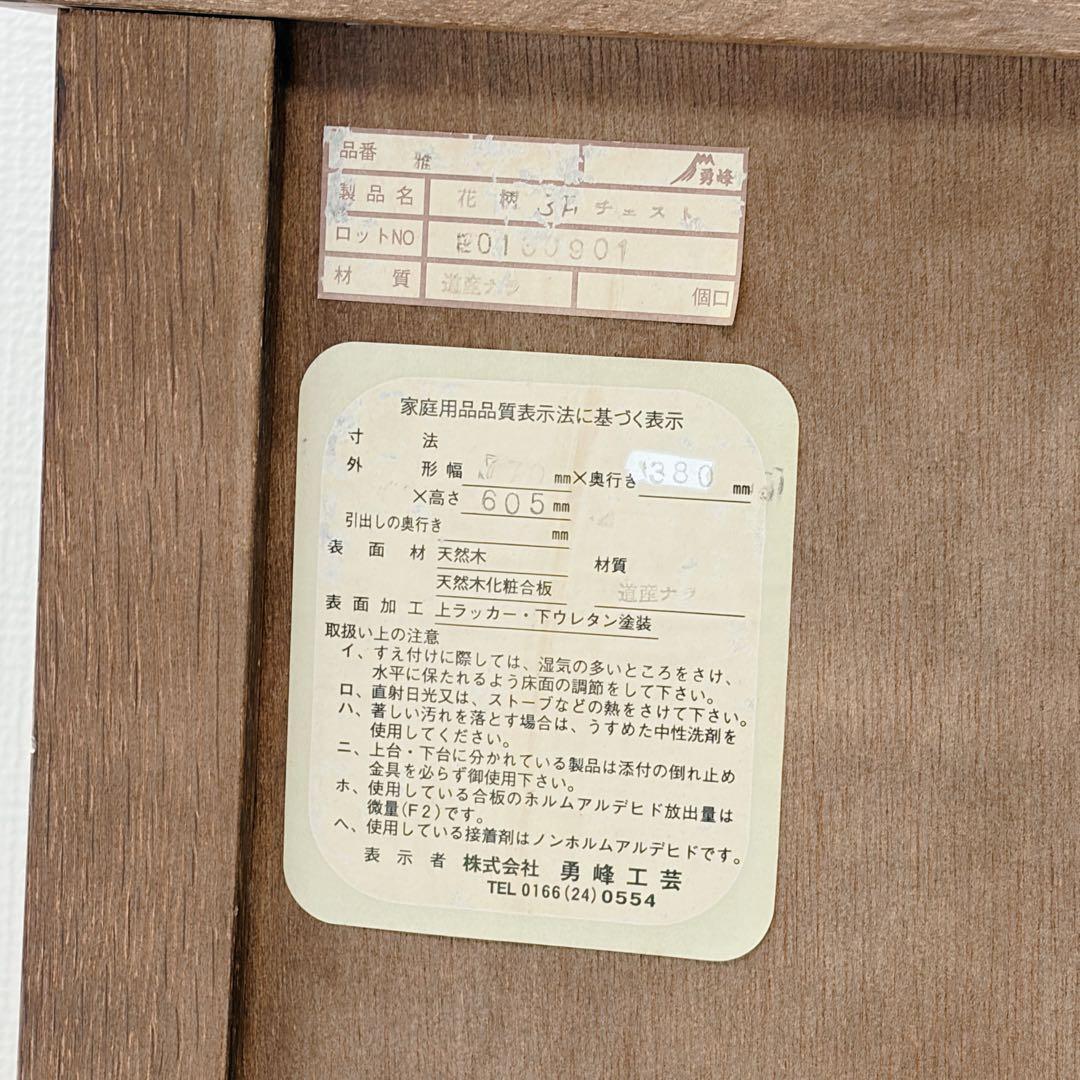 品番 雅 勇峰
製品名 花柄 3H チェスト
ロットNO 901
材質 道産ナラ 個口
家庭用品品質表示法に基づく表示
寸法
外形幅 mm×奥行き 380 mm
×高さ 605 mm
引出しの奥行き mm
表面材 天然木 材質
天然木化粧合板 道産ナラ
表面加工 上ラッカー・下ウレタン塗装
取扱い上の注意
イ、すえ付けに際しては、湿気の多いところをさけ、
水平に保たれるよう床面の調節をして下さい。
ロ、直射日光又は、ストーブなどの熱をさけて下さい。
ハ、著しい汚れを落とす場合は、うすめた中性洗剤を
使用してください。
ニ、上台・下台に分かれている製品は添付の倒れ止め
金具を必らず御使用下さい。
ホ、使用している合板のホルムアルデヒド放出量は
微量(F2)です。
ヘ、使用している接着剤はノンホルムアルデヒドです。
表示者 株式会社 勇峰工芸
TEL 0166(24)0554